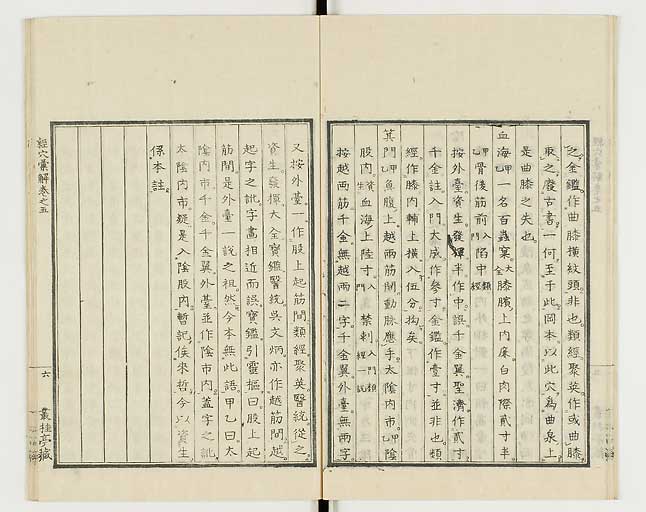 之金鑑作曲膝橫紋頭非也類經聚英作或曲膝
取之廢古書一何至于此岡本以此穴爲曲泉上
是曲膝之失也
血海甲乙一名百蟲窠大全膝臏上內廉白肉際貳寸半
甲乙骨後筋前入門陷中類經
按外臺資生發揮半作中誤千金翼聖濟作貳寸
千金註入門大成作參寸金鑑作壹寸並非也類
經作膝內輔上橫入五分拘矣
箕門甲乙魚腹上越兩筋間動脉應手太陰內市甲乙陰
股內資生血海上陸寸入門禁刺入門類經一說
按越兩筋千金無越兩二字千金翼外臺無兩字
又按外臺一作股上起筋間類經聚英醫統從之
資生發揮大全寶鑑醫統吳文炳亦作越筋間越
起字之訛字畫相近而誤寶鑑引靈樞曰股上起
筋間是外臺一說之祖然今本無此語甲乙曰太
陰內市千金千金翼外臺並作陰市內蓋字之訛
太陰內市疑是入陰股內暫記俟來哲今以資生
係本註
經穴彙解卷之五
六
叢桂亭藏